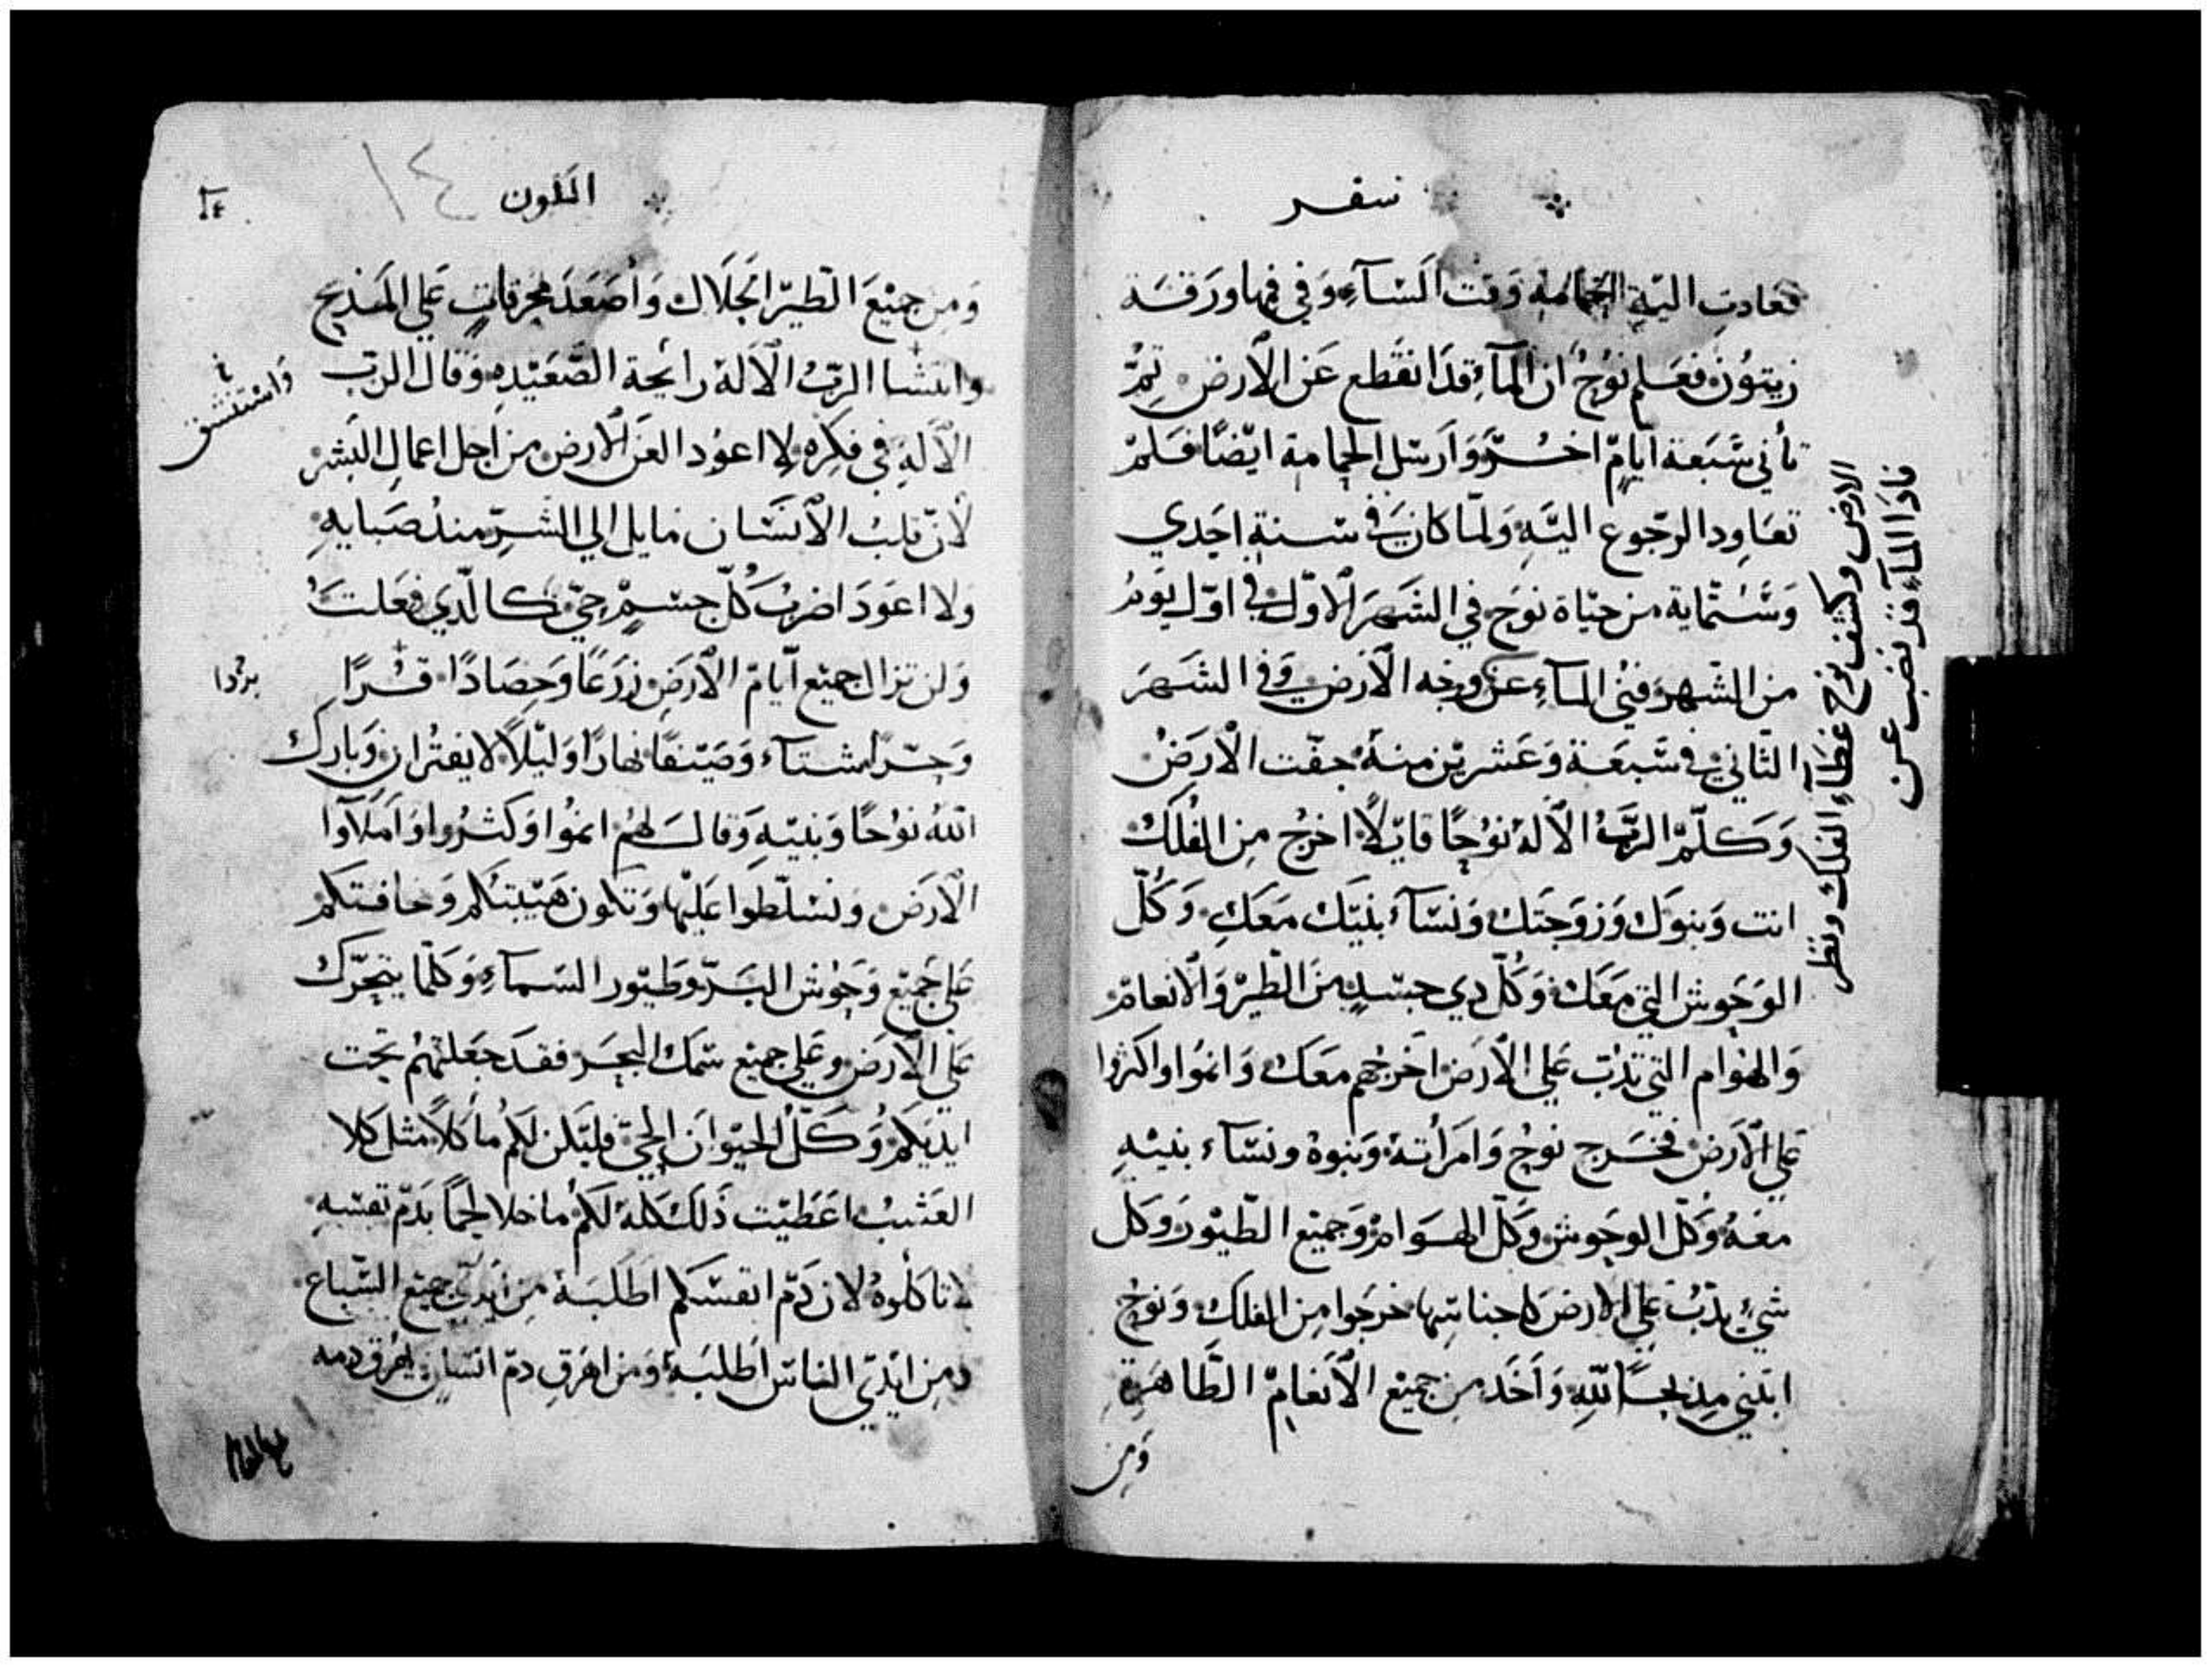 سفر
فعادت اليه الحمامه وقت المسآء وفي فمها ورقة
زيتون فعلم نوح ان المآء قد انقطع عن الارض ثم
تأني سبعة ايام اخر وارسل الحمامة ايضا فلم
تعاود الرجوع اليه ولما كان في سنة احدي
وستماية من حياة نوح في الشهر الاول في اول يوم
من الشهر فني المآء عن وجه الارض وفي الشهر
الثاني في سبعة وعشرين منه جفت الارض
وكلم الرب الاله نوحا قايلا اخرج من الفلك
انت وبنوك وزوجتك ونسآء بنيك معك وكل
الوحوش التي معك وكل دي جسد من الطير والانعام
والهوام التي تدب علي الارض اخرجهم معك وانموا واكثروا
علي الارض فخرج نوح وامرأته وبنوه ونسآء بنيه
معه وكل الوحوش وكل الهوام وجميع الطيور وكل
شيء يدب علي الارض كاجناسها خرجوا من الفلك ونوح
ابتني مذبحا لله واخد من جميع الانعام الطاهرة
ومن
الارض وكشف نوح غطآء الفلك ونظر
فاذا المآء قد نضب عن
التكون
١٤
ومن جميع الطير الحلال واصعد محرقات علي المذبح
وانتشا الرب الاله رائحة الصعيده وقال الرب
واستنشق
الاله في فكره لا اعود العن الارض من اجل اعمال البشر
لان قلب الانسان مايل الي الشر مند صبايه
ولا اعود اضرب كل جسم حي كالدي فعلت
ولن تزال جميع ايام الارض زرعا وحصادا قرا
بردا
وحرا شتآء وصيفا نهارا وليلا لا يفتران وبارك
الله نوحا وبنيه وقال لهم انموا وكثروا واملاوا
الارض وتسلطوا عليها وتكون هيبتكم ومخافتكم
علي جميع وحوش البر وطيور السمآء وكلما يتحرك
علي الارض وعلي جميع سمك البحر فقد جعلتهم تحت
ايديكم وكل الحيوان الحي فليكن لكم مأكلا مثل كلا
العشب اعطيت ذلك كله لكم ما خلا لحما بدم نفسه
لا تاكلوه لان دم انفسكم اطلبه من ايدي جميع السباع
ومن ايدي الناس اطلبه ومن اهرق دم انسان يهرق دمه